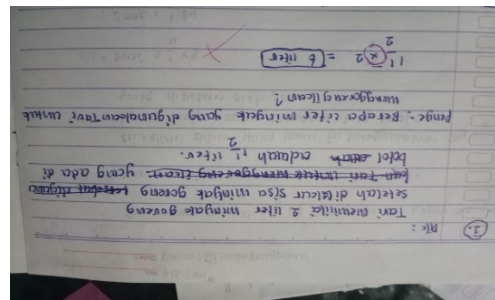 2. Dik :
Tani memiliki 2 liter minyak goreng
setelah diukur sisa minyak goreng
kan Tani untuk menggoreng ikan yang ada di
botol adalah 1 1/2 liter.
Penye : Berapa liter minyak yang digunakan Tani untuk
menggoreng ikan ?
1 1/2 × 2 = 6 liter